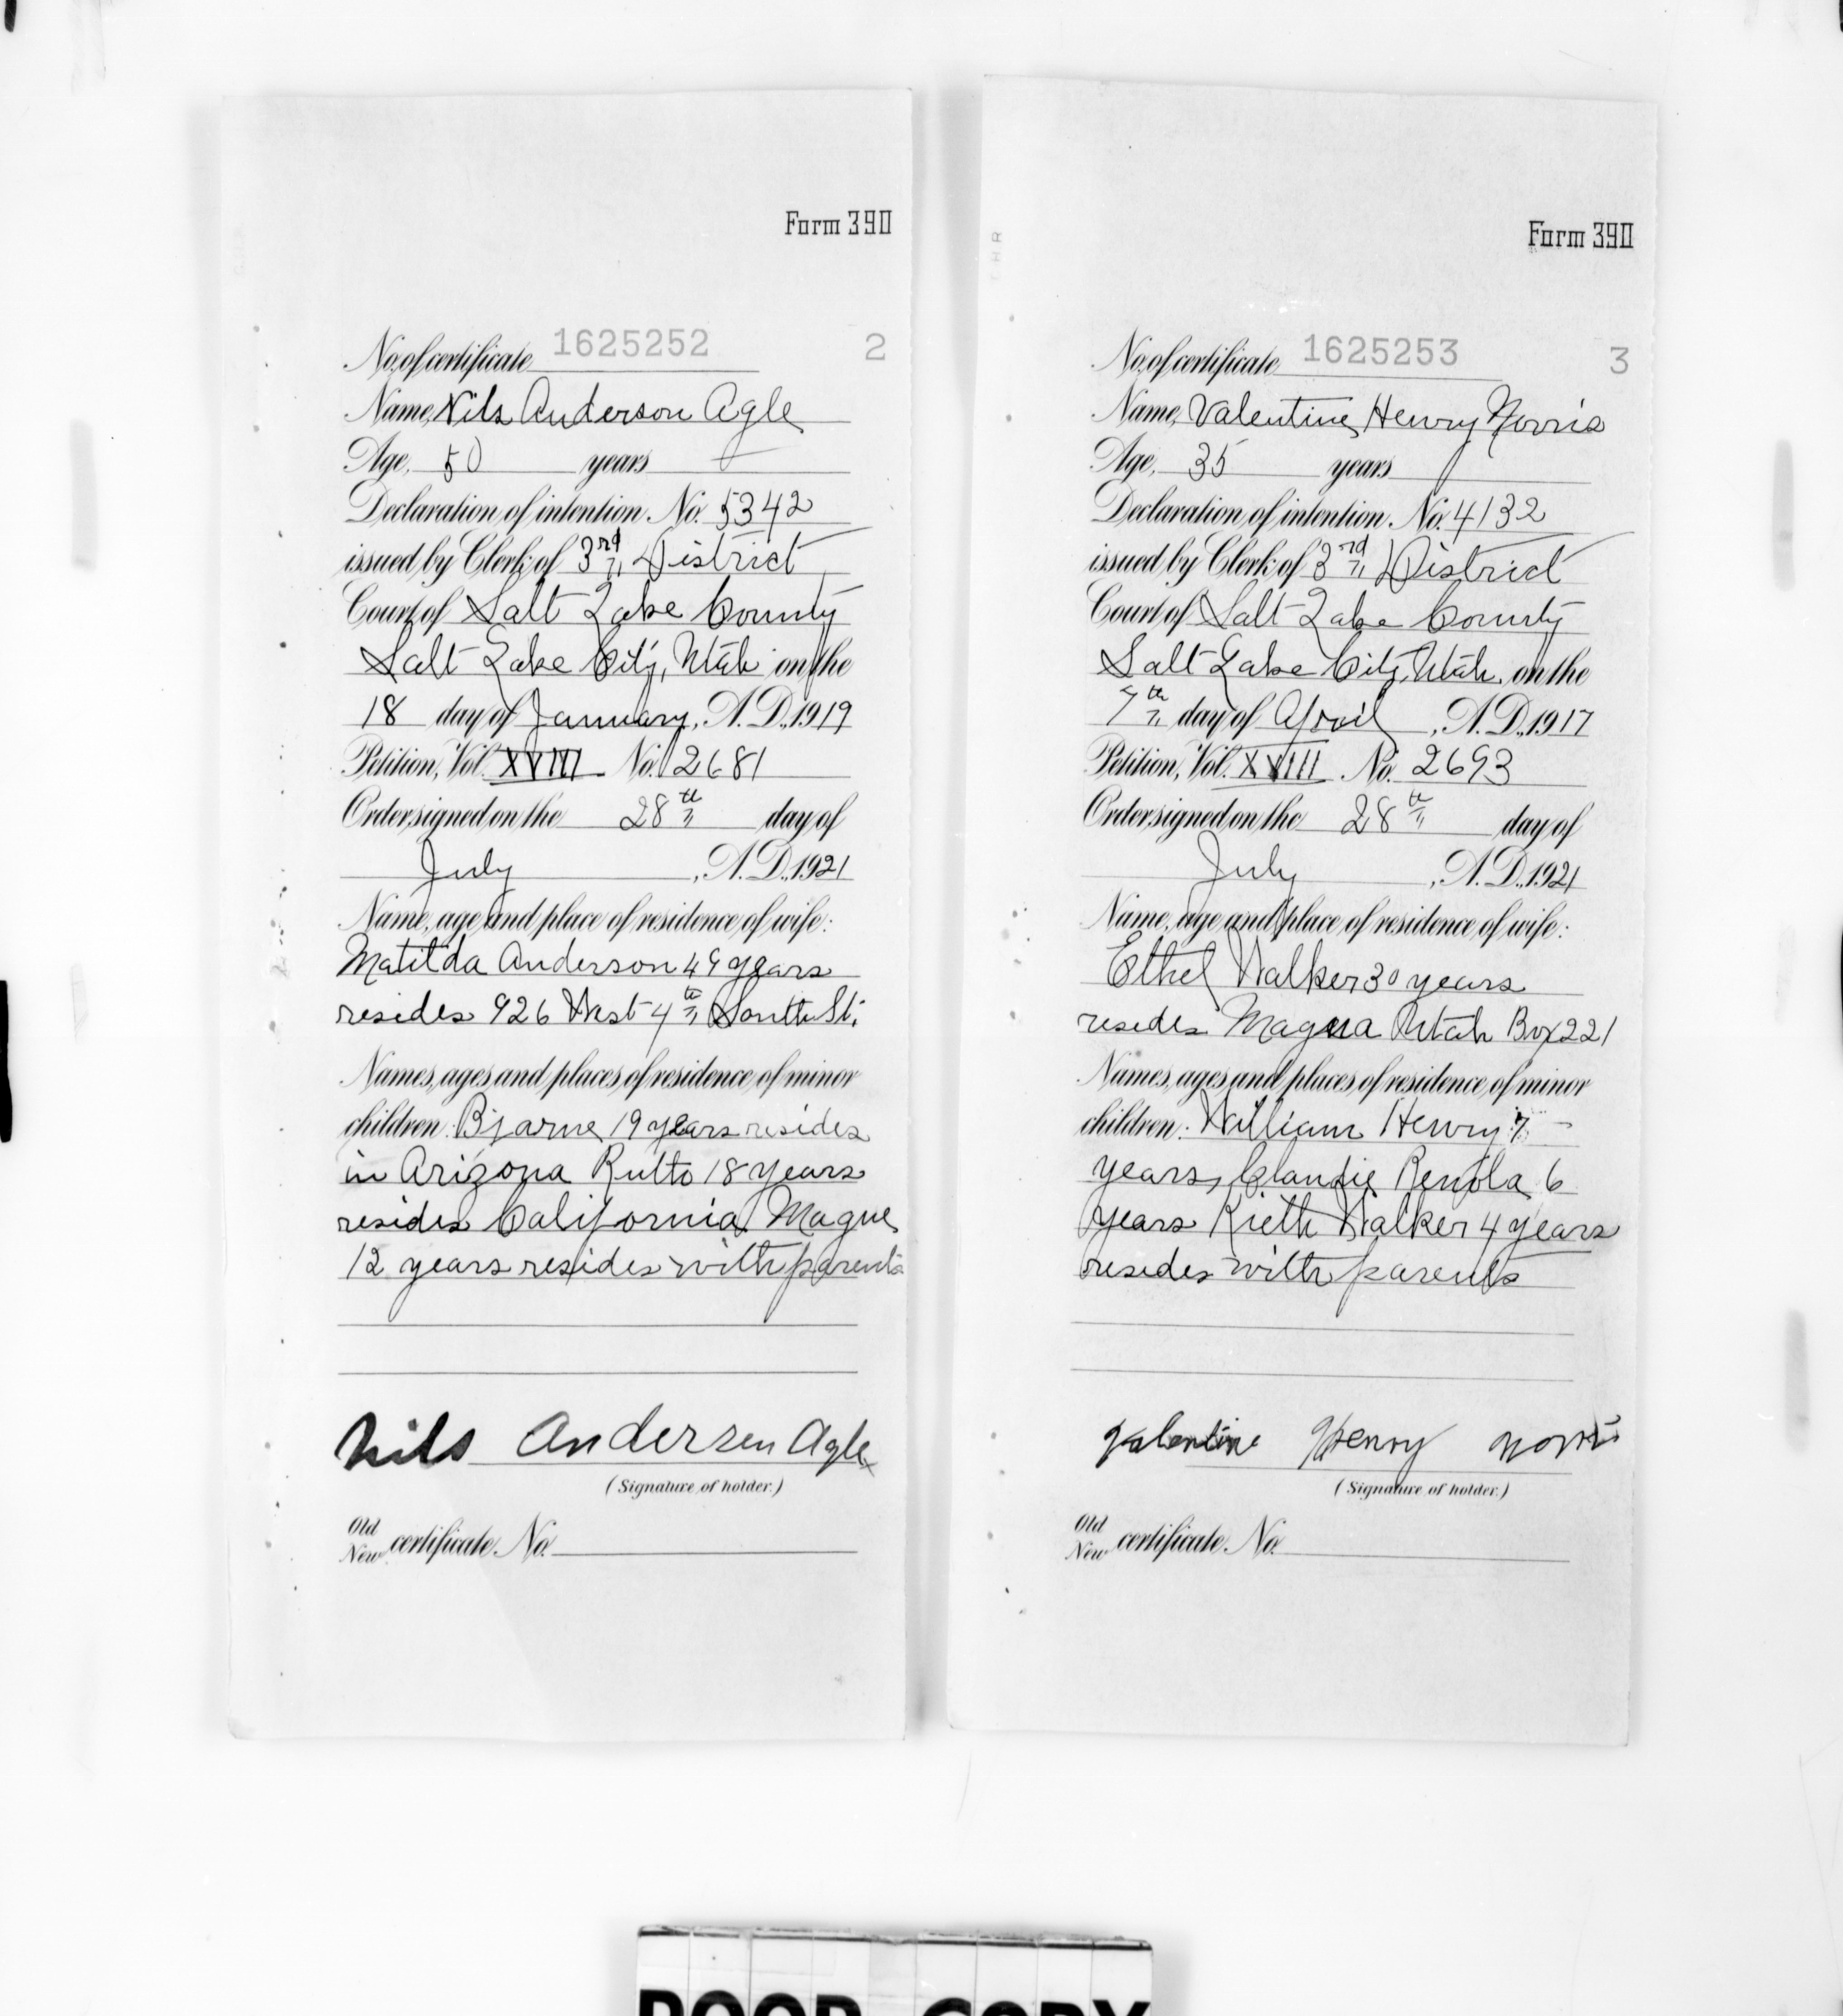 Form 390
No. of certificate 1625252 2
Name, Nils Anderson Agle
Age, 50 years
Declaration of intention No. 5342
issued by Clerk of 3rd District
Court of Salt Lake County
Salt Lake City, Utah on the
18 day of January, A.D., 1919
Petition, Vol. XVIII No. 2681
Order signed on the 28th day of
July, A.D., 1921
Name, age and place of residence of wife:
Matilda Anderson 49 years
resides 926 West 4th South St.
Names, ages and places of residence of minor
children: Bjarne 19 years resides
in Arizona 18 years
resides California Magne
12 years resides with parents
Nils Andersen Agle
(Signature of holder.)
Old
New certificate No.
Form 390
No. of certificate 1625253 3
Name, Valentine Henry Norris
Age, 35 years
Declaration of intention No. 4132
issued by Clerk of 3rd District
Court of Salt Lake County
Salt Lake City, Utah. on the
7th day of April, A.D., 1917
Petition, Vol. XVIII. No. 2693
Order signed on the 28th day of
July, A.D., 1921
Name, age and place of residence of wife:
Ethel Walker 30 years
resides Magna Utah Box 221
Names, ages and places of residence of minor
children: William Henry 7
years, Renola 6
years Kieth Walker 4 years
resides with parents
Valentine Henry Norris
(Signature of holder.)
Old
New certificate No.
POOR COPY